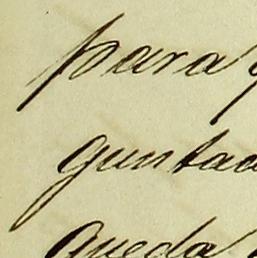 para
guntad
queda